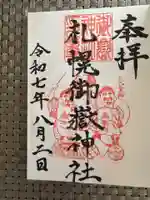 奉拝
札幌御嶽神社
令和七年八月二日